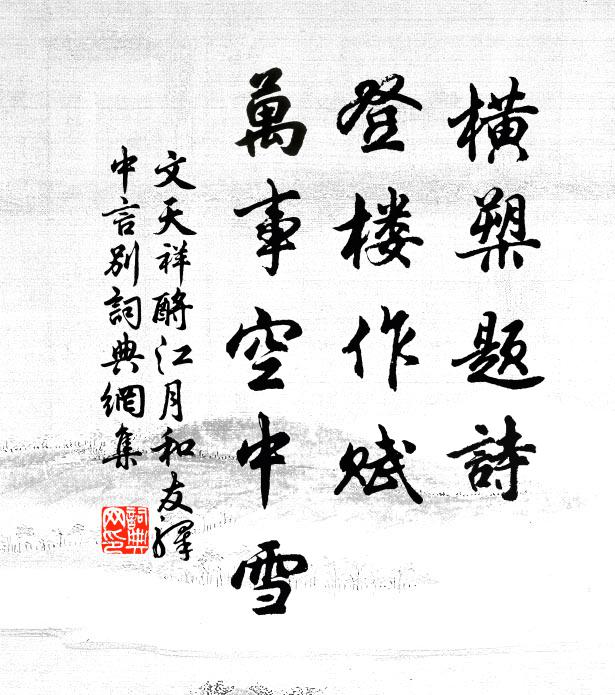 横槊題詩
登楼作赋
萬事空中雪
文天祥酹江月和友驛
中言别詞典網集
詞典网印